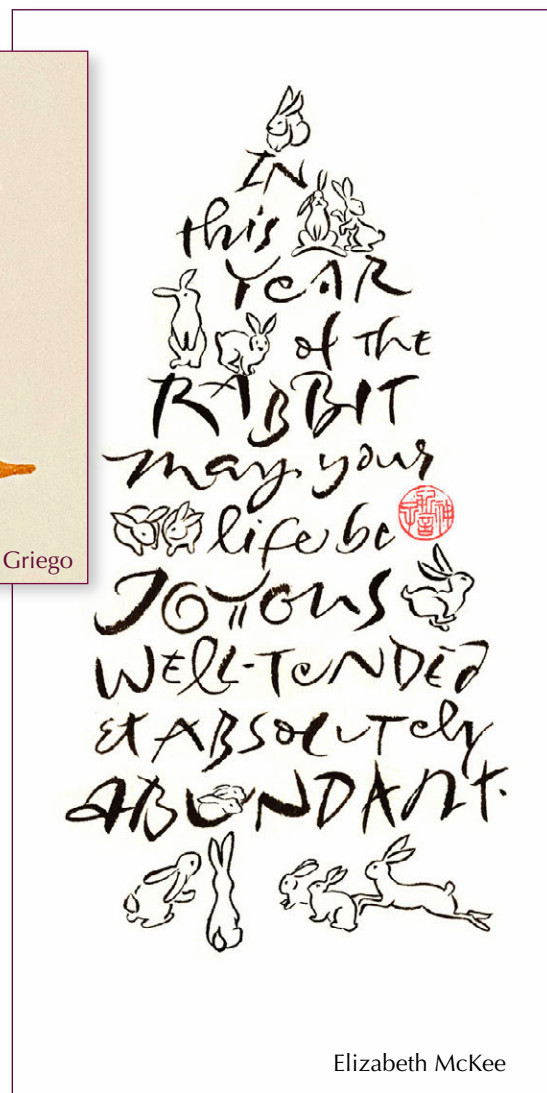 IN
this
YeAR
of the
RABBIT
may your
life be
JOYOUS
WELL-TeNDED
et ABSOLUTely
ABUNDANT.
Griego
Elizabeth McKee